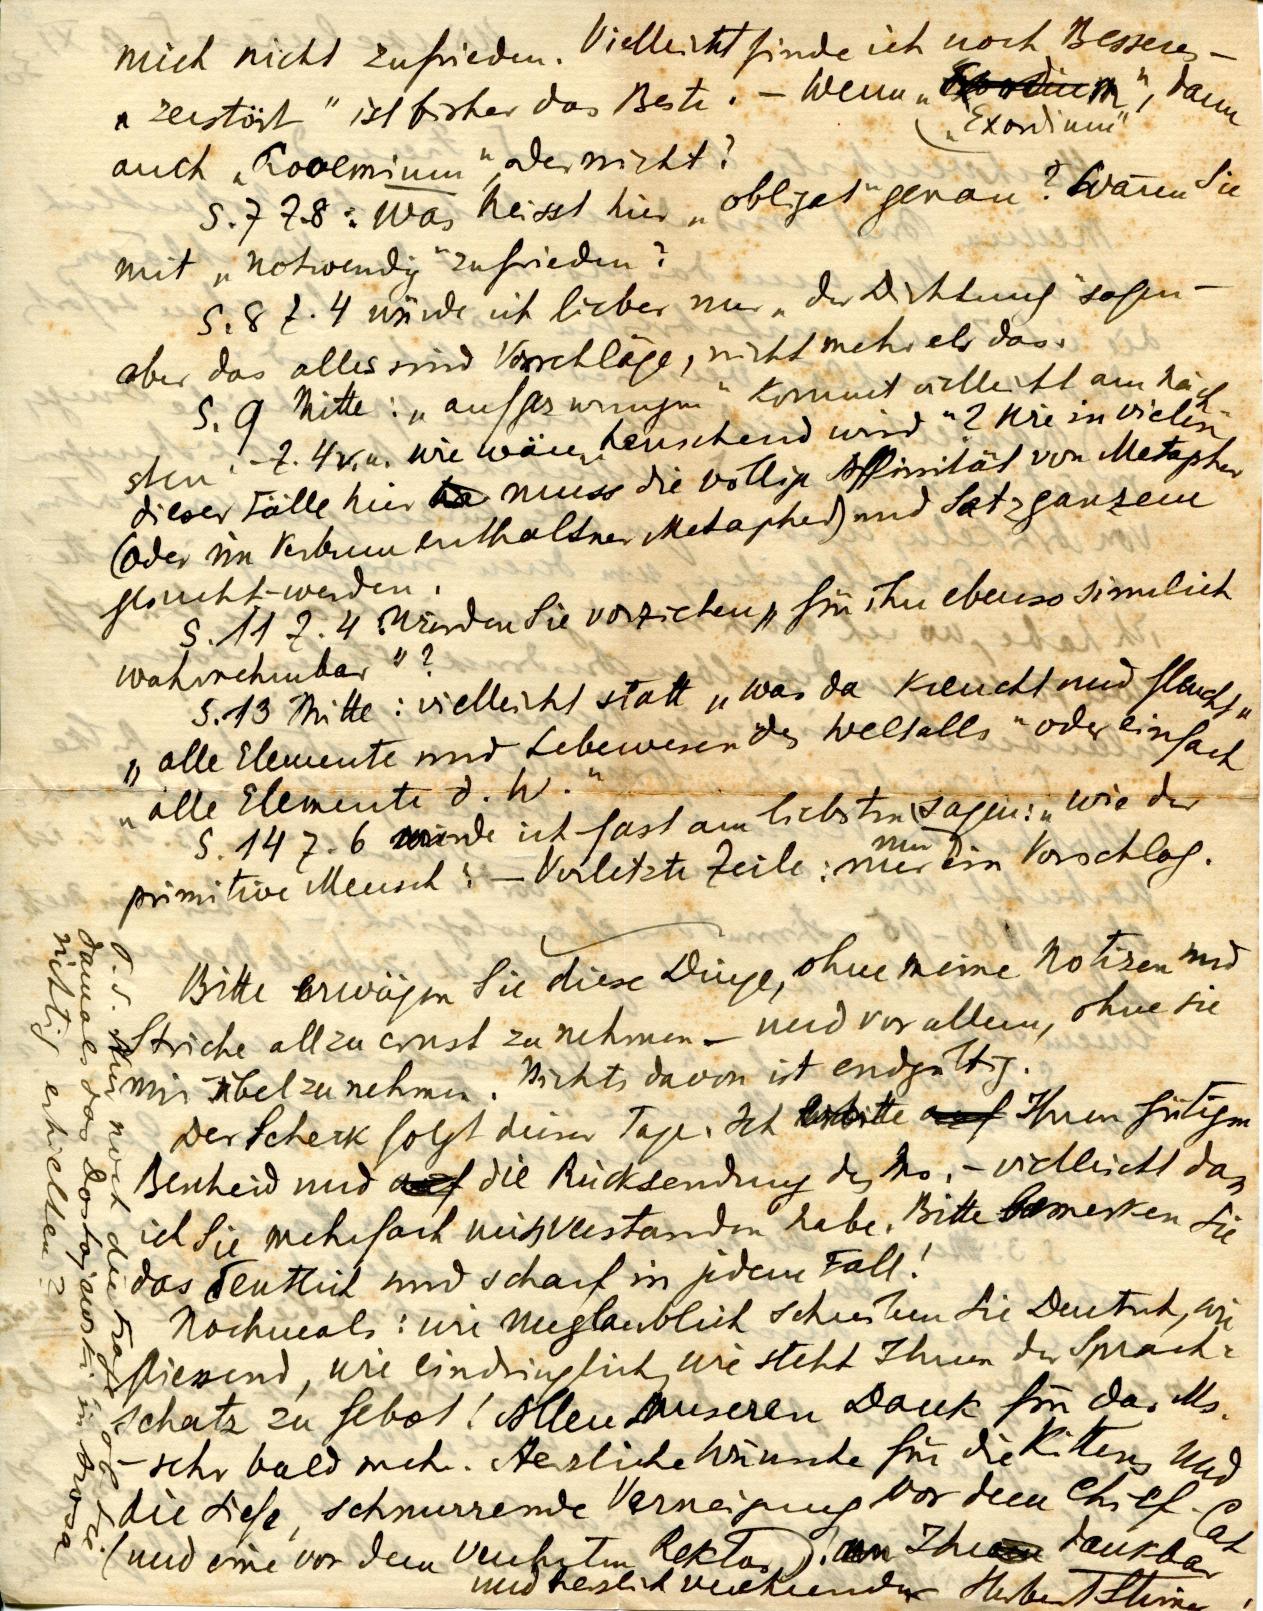 mich nicht zufrieden. Vielleicht finde ich noch Besseres –
„zerstört" ist bisher das Beste. – Wenn „Exordium", dann
„Exordium"
auch „Prooemium", oder nicht?
S. 7 Z. 8: Was heisst hier „obligat" genau? Wären Sie
mit „notwendig" zufrieden?
S. 8 Z. 4 würde ich lieber nur „der Dichtung" sagen –
aber das alles sind Vorschläge, nicht mehr als das.
S. 9 Mitte: „aufgezwungen" kommt vielleicht am näch-
sten. – Z. 4 v. u. wie wäre „herrschend wird"? Wie in vielen
dieser Fälle hier muss die völlige Affinität von Metapher
(oder im Verbum enthaltner Metapher) und Satzganzem
gesucht werden.
S. 11 Z. 4 Würden Sie vorziehen „für ihn ebenso sinnlich
wahrnehmbar"?
S. 13 Mitte: vielleicht statt „was da kreucht und fleucht"
„alle Elemente und Lebewesen des Weltalls" oder einfach
„alle Elemente d. W."
S. 14 Z. 6 würde ich fast am liebsten sagen: „wie der
primitive Mensch". – Vorletzte Zeile: nur ein Vorschlag.
nur
Bitte erwägen Sie diese Dinge, ohne meine Notizen und
Striche allzu ernst zu nehmen – und vor allem, ohne sie
mir übel zu nehmen. Nichts davon ist endgültig.
Der Scheck folgt dieser Tage. Ich erbitte auf Ihren gütigen
Bescheid und auf die Rücksendung des Ms. – vielleicht dass
ich Sie mehrfach missverstanden habe. Bitte bemerken Sie
das deutlich und scharf in jedem Fall!
Nochmals: wie unglaublich schreiben Sie Deutsch, wie
fliessend, wie eindringlich, wie steht Ihnen der Sprach-
schatz zu Gebot! Allen unseren Dank für das Ms.
– sehr bald mehr. Herzliche Wünsche für die Kittens und
die tiefe, schnurrende Verneigung vor dem Chief-Cat
(und eine vor dem verehrten Rektor)! Ihr dankbar
und herzlich verehrender Herbert Steiner
P. S. Nur noch die Frage, ob Sie
damals das Dostojewski in Prosa
richtig erhielten?